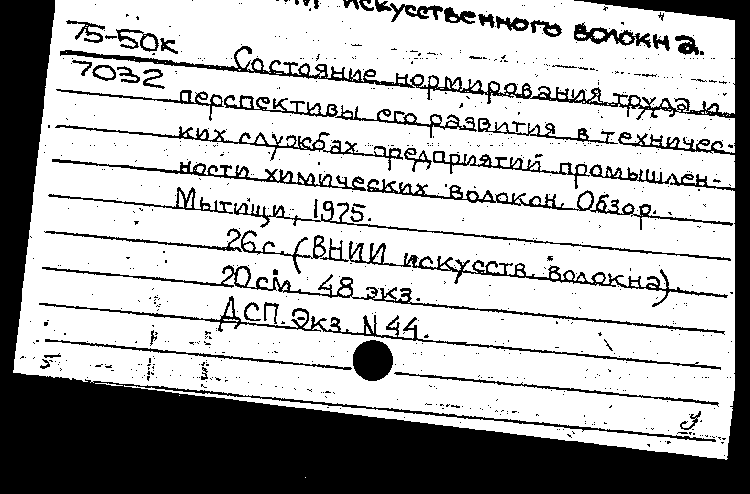 искусственного волокна.
75-50к
7032
Состояние нормирования труда и
перспективы его развития в техничес-
ких службах предприятий промышлен-
ности химических волокон. Обзор.
Мытищи, 1975.
26 с. (ВНИИ искусств. волокна).
20 см. 48 экз.
ДСП. Экз. N 44.